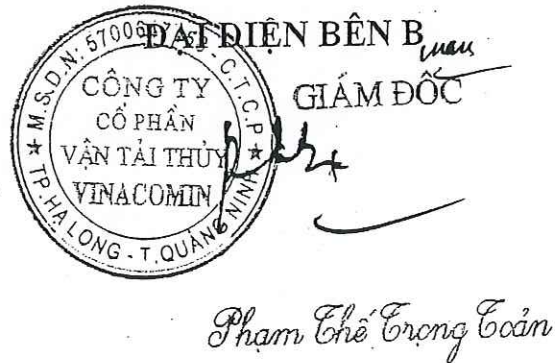 ĐẠI DIỆN BÊN B
GIÁM ĐỐC
M.S.D.N: 5700 - C.T.C.P
CÔNG TY
CỔ PHẦN
VẬN TẢI THỦY
VINACOMIN
TP. HẠ LONG - T. QUẢNG NINH
Phạm Thế Trọng Toản